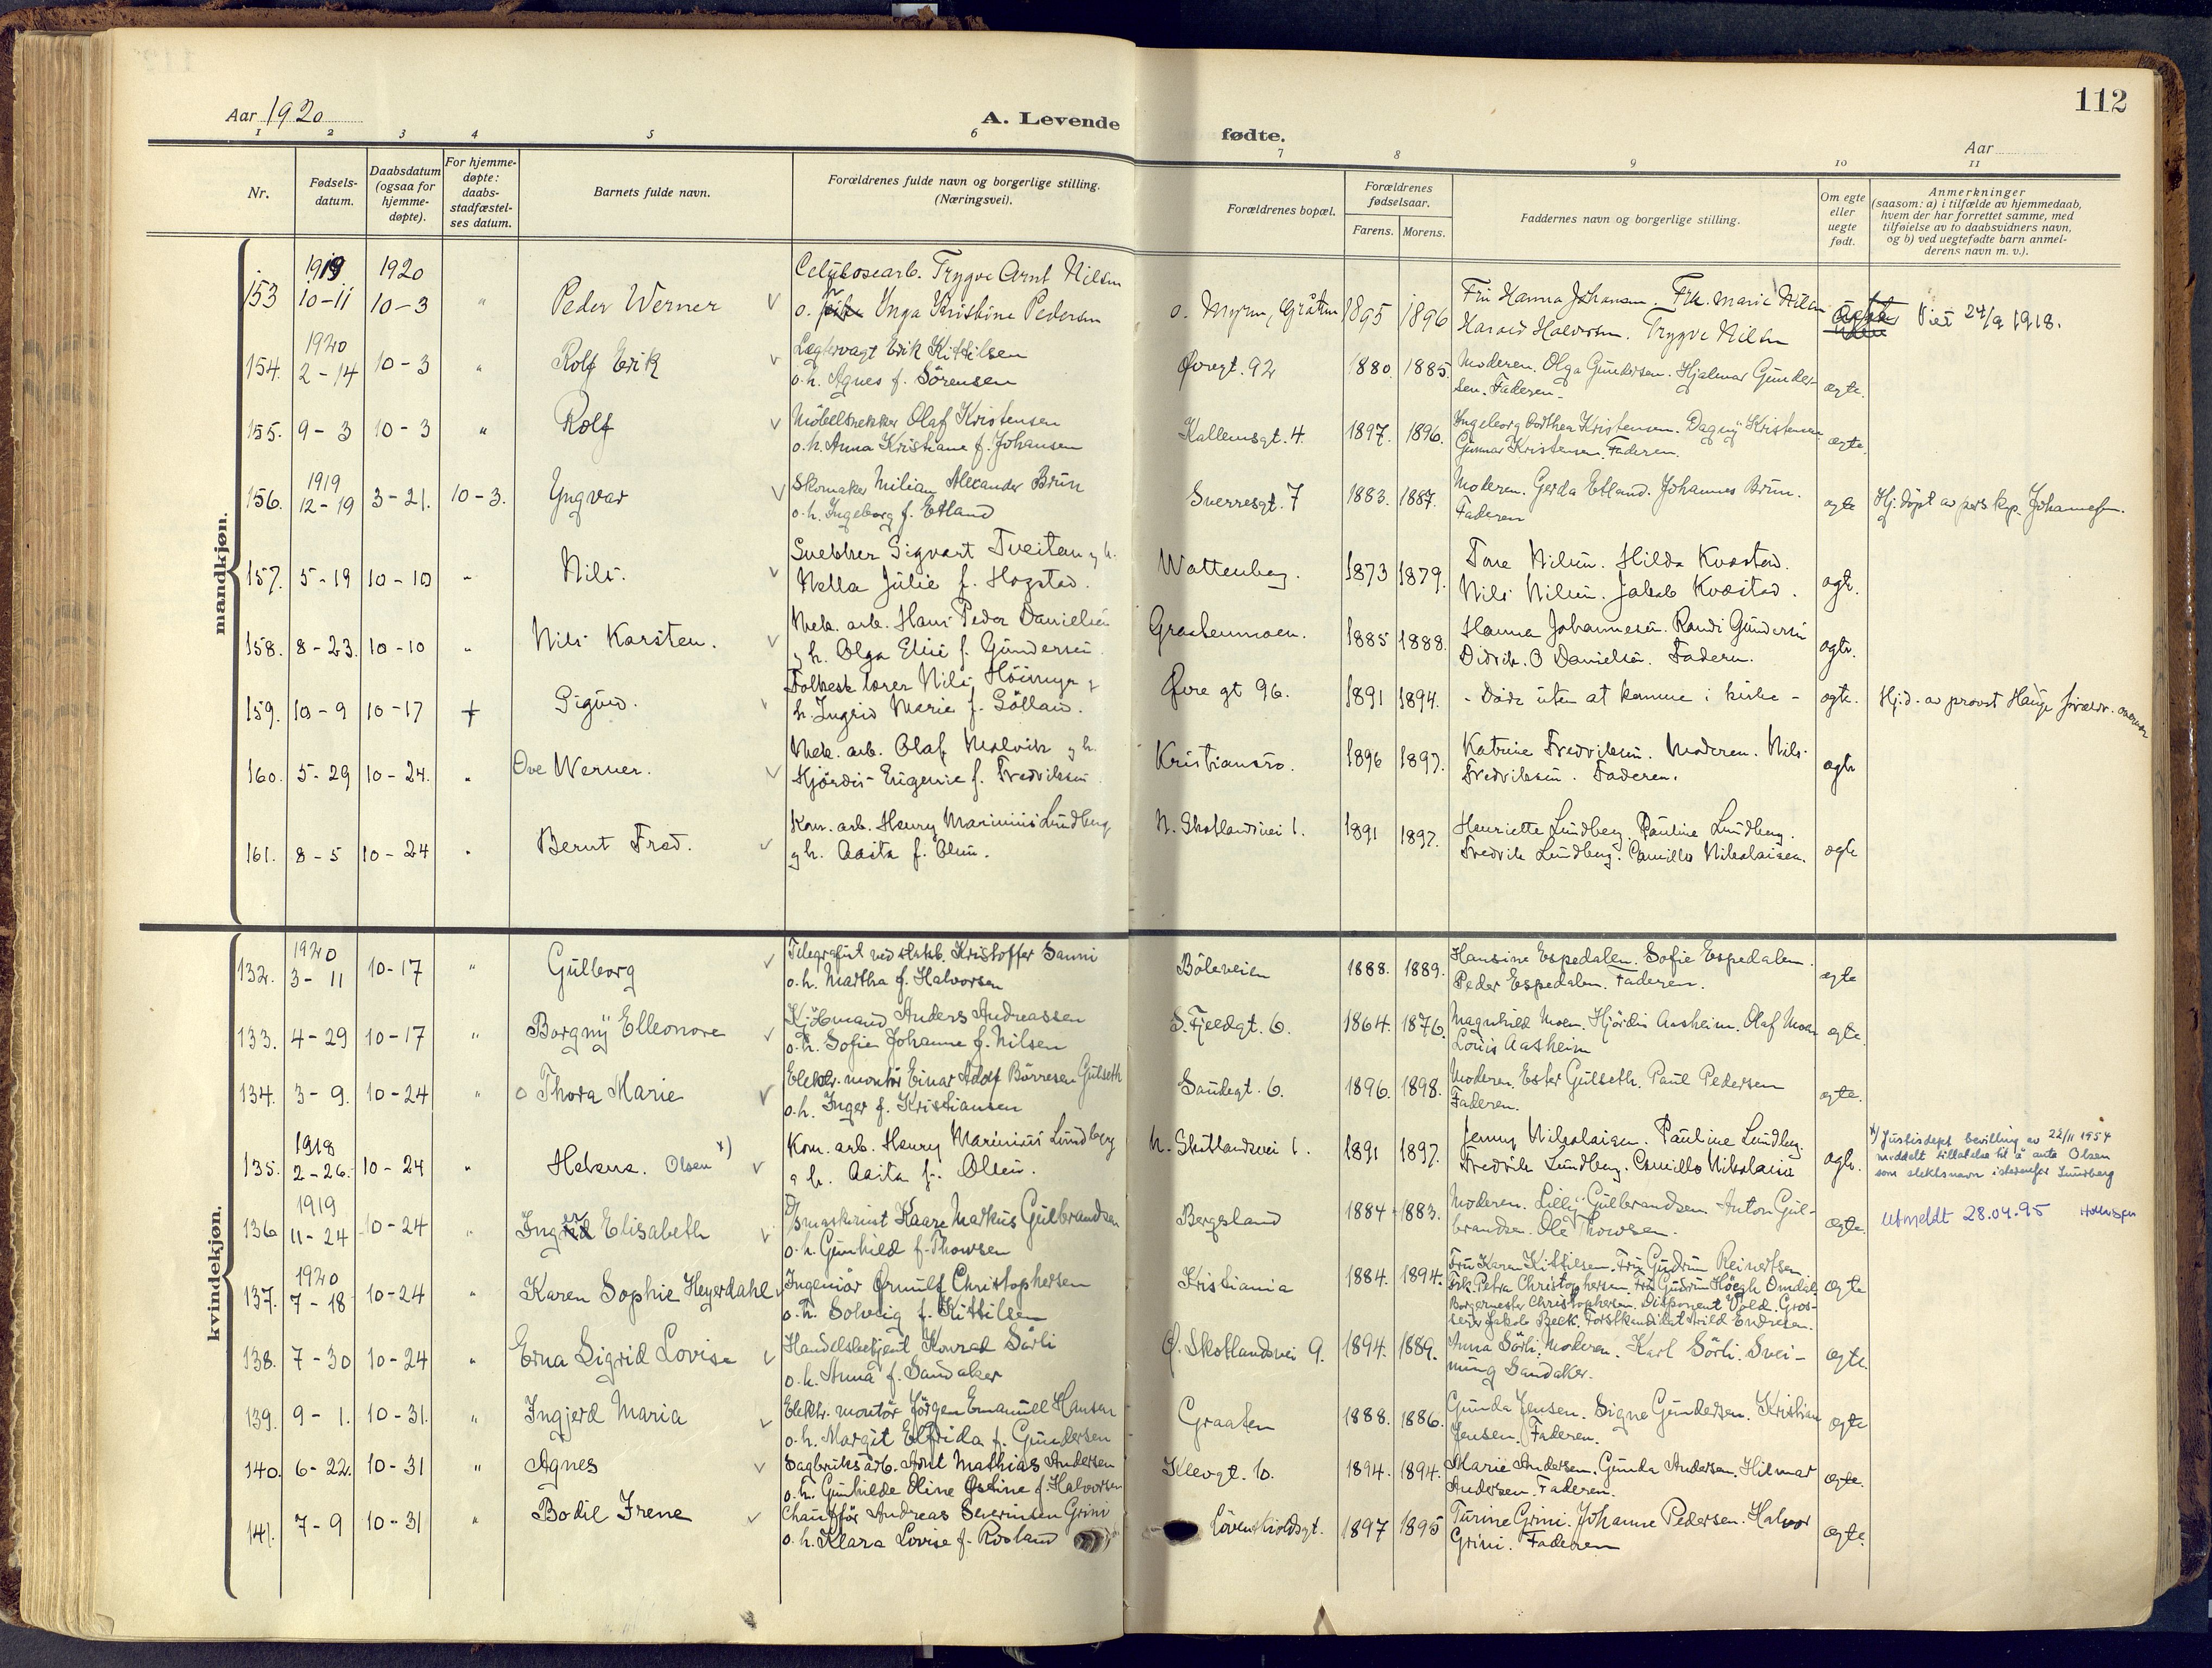 112
Aar 1920
A. Levende fødte.
Aar
1 2 3 4 5 6 7 8 9 10 11
Nr.
Fødsels-
datum.
Daabsdatum
(ogsaa for
hjemme-
døpte).
For hjemme-
døpte:
daabs-
stadfæstel-
ses datum.
Barnets fulde navn.
Forældrenes fulde navn og borgerlige stilling.
(Næringsvei).
Forældrenes bopæl.
Forældrenes
fødselsaar.
Farens. Morens.
Faddernes navn og borgerlige stilling.
Om egte
eller
uegte
født.
Anmerkninger
(saasom: a) i tilfælde av hjemmedaab,
hvem der har forrettet samme, med
tilføielse av to daabsvidners navn,
og b) ved uegtefødte barn anmel-
derens navn m. v.).
mandkjøn.
1919 1920 Celulosearb. Trygve Arnt Nilsen
153 10-11 10-3 " Peder Werner o. Inga Kristine Pedersen o. Myren, Gråten 1895 1896 Fru Hanna Johansen. Frk. Marie Nilsen
Harald Halvorsen. Trygve Nilsen Viet 24/9 1918.
1920 Lægtervagt Erik Kittilsen
154. 2-14 10-3 " Rolf Erik o.h. Agnes f. Sörensen Øvregt. 92 1880. 1885. Moderen. Olga Gundersen. Hjalmar Gunder-
sen. Faderen. egte.
155. 9-3 10-3 " Rolf Möbeltrekker Olaf Kristensen
o.h. Anna Kristiane f. Johansen Kallemsgt. 4. 1897. 1896. Ingeborg Dorthea Kristensen. Dagny Kristensen
Gunnar Kristensen. Faderen. egte.
1919 Skomaker Milian Alexander Brun
156. 12-19 3-21. 10-3. Yngvar o.h. Ingeborg f. Etland Sverresgt. 7 1883. 1887. Moderen. Gerda Etland. Johannes Brun.
Faderen egte Hj.döpt av pers. kap. Johannesen.
157. 5-19 10-10 " Nils. Snekker Sigvart Tveitan og h.
Nella Julie f. Hogstad. Wattenberg. 1873 1879. Tone Nilsen. Hilda Kvæstad.
Nils Nilsen. Jakob Kvæstad. egte.
158. 8-23. 10-10 " Nils Karsten. Mek. arb. Hans Peder Danielsen
og h. Olga Elise f. Gundersen Graatenmoen. 1885 1888. Hanna Johannesen. Randi Gundersen
Didrik. O Danielsen. Faderen. egte.
159. 10-9 10-17 + Sigurd. Folkesk lærer Nils Höimyr og
h. Ingrid Marie f. Sölland. Øvre gt 96. 1891 1894. - Döde uten at komme i kirke - egte. Hj.d. av provst Hauge
160. 5-29 10-24. " Ove Werner. Mek. arb. Olaf Malvik og h.
Hjördis Eugenie f. Fredriksen Kristiansro. 1896 1897. Katrine Fredriksen. Moderen. Nils
Fredriksen. Faderen. egte
161. 8-5 10-24 " Bernt Fred. Kom. arb. Henry Marinius Lundberg
og h. Aasta f. Olsen. N. Skotlandsvei 1. 1891 1897. Henriette Lundberg. Pauline Lundberg.
Fredrik Lundberg. Camillo Nikolaisen. egte
kvindekjøn.
1920 Telegrafist ved Kristoffer Sanni
132. 3-11 10-17 " Gulborg o.h. Martha f. Halvorsen Böleveien 1888. 1889. Hansine Espedalen. Sofie Espedalen.
Peder Espedalen. Faderen. egte
133. 4-29 10-17 " Borgny Elleonore Kjömand Anders Andreassen
o.h. Sofie Johanne f. Nilsen S. Fjeldgt. 6. 1864. 1876. Magnhild Moen. Hjördis Aasheim. Olaf Moen
Louis Aasheim egte.
134. 3-9. 10-24 " o Thora Marie Elektr. montör Einar Adolf Börresen Gulseth
o.h. Inger f. Kristiansen Sandegt. 6. 1896. 1898. Moderen. Ester Gulseth. Paul Pedersen
Faderen. egte.
1918
135. 2-26. 10-24 " Helene. Olsen x) Kom. arb. Henry Marinius Lundberg
og h. Aasta f. Olsen. N. Skotlandsvei 1. 1891 1897. Jenny Nikolaisen. Pauline Lundberg.
Fredrik Lundberg. Camillo Nikolaisen egte. x) Justisdept bevilling av 22/11 1954
meddelt tillatelse til å anta Olsen
som slektsnavn istedenfor Lundberg
1919
136 11-24 10-24 " Inger Elisabeth D/Smaskinist Kaare Markus Gulbrandsen
o.h. Gunhild f. Thowsen Bergsland 1884 1883. Moderen. Lilly Gulbrandsen. Anton Gul-
brandsen. Ole Thowsen. egte. Utmeldt 28.04.95
1920
137. 7-18 10-24 " Karen Sophie Heyerdahl Ingeniör Ørnulf Christophersen
o.h. Solveig f. Kittilsen Kristiania 1884. 1894. Fru Karen Kittilsen. Fru Gudrun Reinertsen.
Frk. Petra Christophersen. Fru Gudrun Höegh Omdal
Borgermester Christophersen. Disponent Vold. Gros-
serer Jakob Beck. Forstkandidat Arild Endresen. egte
138. 7-30 10-24 " Erna Sigrid Lovise Handelsbetjent Konrad Sörli
o.h. Anna f. Sandaker Ø. Skotlandsvei 9. 1894. 1889. Anna Sörli. Moderen. Karl Sörli. Svei-
nung Sandaker. egte.
139. 9-1. 10-31. " Ingjerd Maria Elektr. montör Jörgen Emanuell Hansen
o.h. Margit Elfrida f. Gundersen Graaten 1888. 1886. Gunda Jensen. Signe Gundersen. Kristian
Jensen. Faderen. egte
140. 6-22. 10-31 " Agnes Sagbruksarb. Arnt Mathias Andersen
o.h. Gunhilde Oline Østine f. Halvorsen Klevgt. 10. 1894. 1894. Marie Andersen. Gunda Andersen. Hilmar
Andersen. Faderen. egte.
141. 7-9 10-31 " Bodil Irene Chaufför Andreas Severinsen Grini
o.h. Klara Lovise f. Rosland Lövenskioldsgt. 1897 1895 Turine Grini. Johanne Pedersen. Halvor
Grini. Faderen egte.